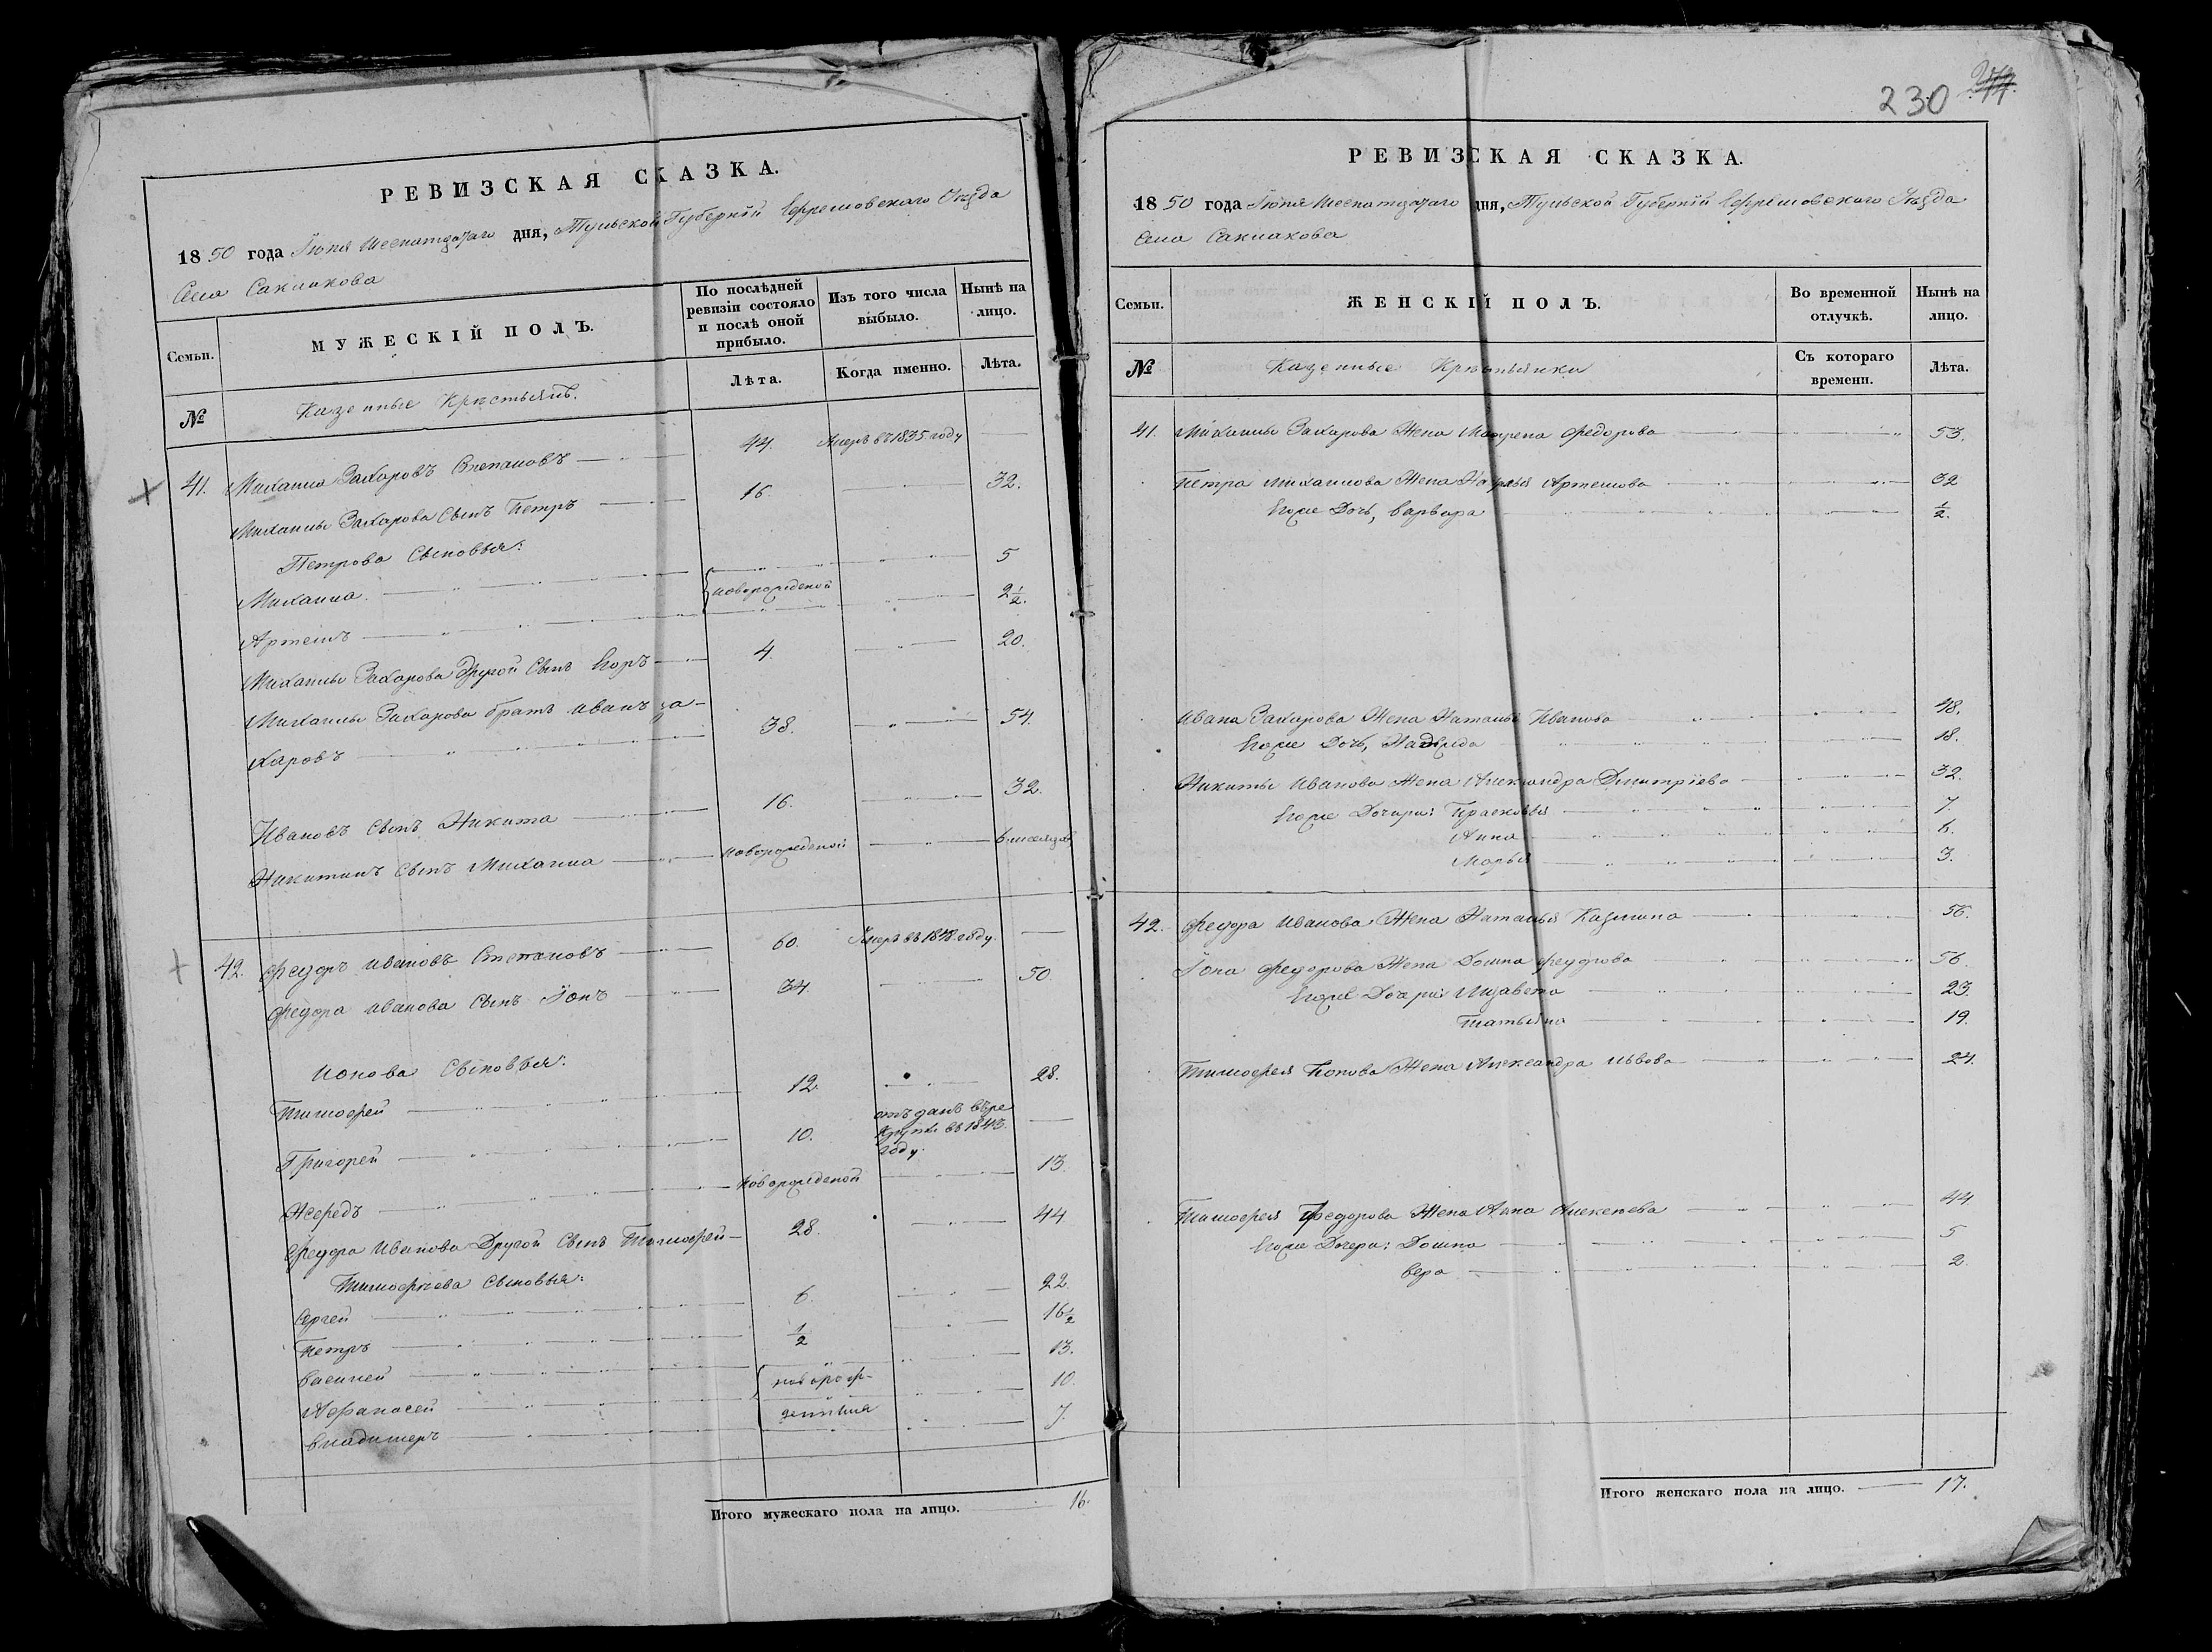 РЕВИЗСКАЯ СКАЗКА.
1850 года Іюня Шеснатцатаго дня, Тульской Губерніи Ефремовскаго Уѣзда
Села Саклакова
Семьи.
МУЖЕСКІЙ ПОЛЪ.
По послѣдней ревизіи состояло и послѣ оной прибыло.
Изъ того числа выбыло.
Нынѣ на лицо.
№
Казенные Крестьянѣ.
Лѣта.
Когда именно.
Лѣта.
41. Михаила Захаровъ Степановъ 44. Умеръ въ 1835 году
Михаилы Захарова Сынъ Петръ 16. 32.
Петрова Сыновья:
Михаила 5
новорожденой
Артемъ 2 1/2.
Михаилы Захарова Другой Сынъ Егоръ 4. 20.
Михаилы Захарова братъ Иванъ За-
харовъ 38. 54.
Ивановъ Сынъ Никита 16. 32.
Никитинъ Сынъ Михаила новорожденой 6 месяцов
42. Федоръ Ивановъ Степановъ 60. Умеръ въ 1848 году.
Федора Иванова Сынъ Іонъ 34. 50
Ионова Сыновья:
Тимофей 12. 28.
Григорей 10. отъданъ въре
круты въ 1843.
году.
новорожденой 13.
Федора Иванова Другой Сынъ Тимофей 28. 44
Тимофеева Сыновья:
Сергей 6. 22.
Петръ 1/2 16 1/2
Василей 13.
новорож-
Афанасей 10.
денныя
Владимеръ 7.
Итого мужескаго пола на лицо. 16.
230
РЕВИЗСКАЯ СКАЗКА.
1850 года Іюня Шеснатцатаго дня, Тульской Губерніи Ефремовскаго Уѣзда
Села Саклакова
Семьи.
ЖЕНСКІЙ ПОЛЪ.
Во временной отлучкѣ.
Нынѣ на лицо.
№
Казенные Крестьянки
Съ котораго времени.
Лѣта.
41. Михаилы Захарова Жена Матрена Федорова 53.
Петра Михаилова Жена Наталья Артемова 32
Егоже Дочь, Варвара 1/2.
Ивана Захарова Жена Наталья Иванова 48.
Егоже Дочь, Надежда 18.
Никиты Иванова Жена Александра Дмитріева 32.
Егоже Дочери: Прасковья 7.
Анна 6.
Марья 3.
42. Федора Иванова Жена Наталья Казмина 56.
Іона Федорова Жена Домна Федорова 56.
Егоже Дочери: Лизавета 23.
Татьяна 19.
Тимофея Ионова Жена Александра Львова 24.
Тимофея Федорова Жена Анна Алексеева 44
Егоже Дочери: Домна 5
Вера 2.
Итого женскаго пола на лицо. 17.